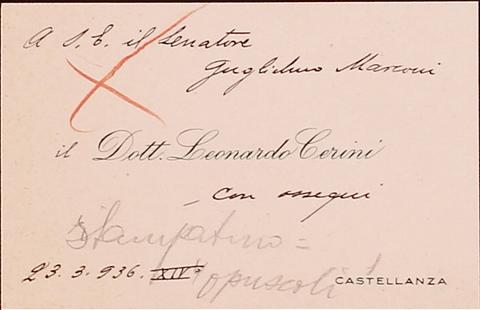 A S. E. il Senatore
Guglielmo Marconi
il Dott. Leonardo Cerini
con ossequi
Stampatino =
23.3.936. XIV°
opuscoli
CASTELLANZA